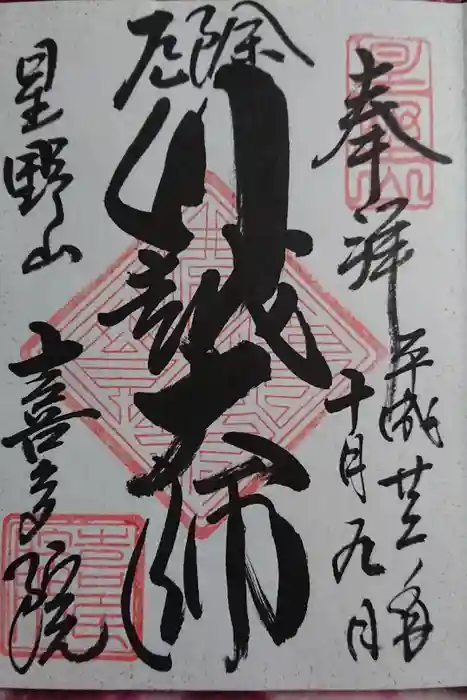 奉拝
平成廿三年
十月九日
厄除
川越大師
星野山
喜多院